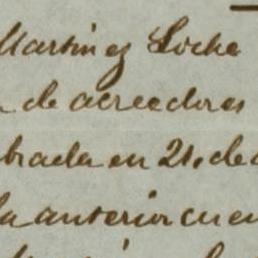 Martinez Locke
de acreedores
brada en 21, de
la anterior cuen